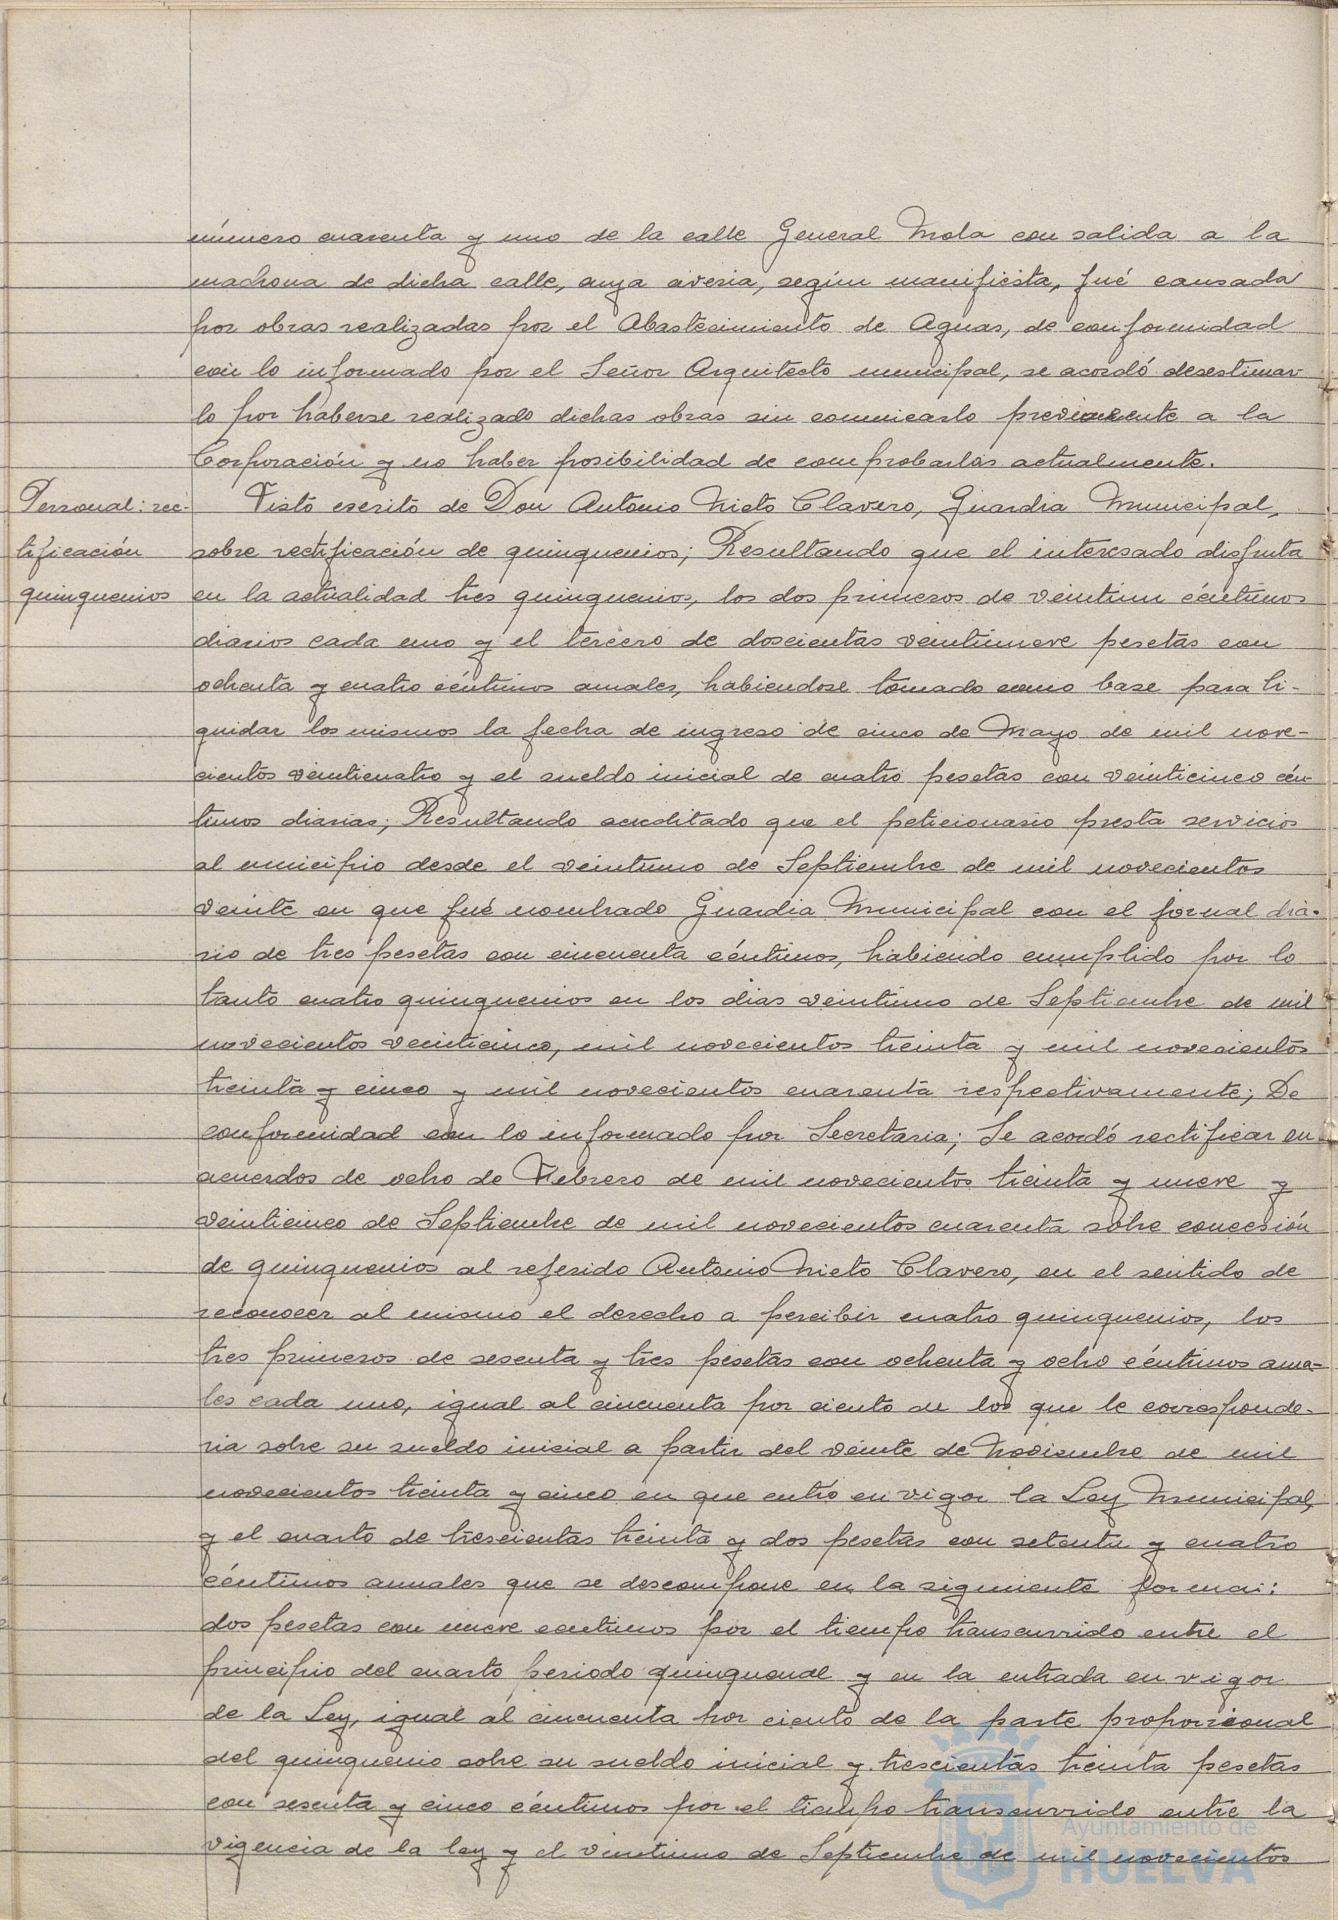 número cuarenta y uno de la calle General Mola con salida a la
machona de dicha calle, cuya averia, según manifiesta, fué causada
por obras realizadas por el Abastecimiento de Aguas, de conformidad
con lo informado por el Señor Arquitecto municipal, se acordó desestimar-
lo por haberse realizado dichas obras sin comunicarlo previamente a la
Corporación y no haber posibilidad de comprobarlas actualmente.
Personal: rec-
tificación
quinquenios
Visto escrito de Don Antonio Nieto Clavero, Guardia Municipal,
sobre rectificación de quinquenios; Resultando que el interesado disfruta
en la actualidad tres quinquenios, los dos primeros de veintiun céntimos
diarios cada uno y el tercero de doscientas veintinueve pesetas con
ochenta y cuatro céntimos anuales, habiendose tomado como base para li-
quidar los mismos la fecha de ingreso de cinco de Mayo de mil nove-
cientos veinticuatro y el sueldo inicial de cuatro pesetas con veinticinco cén-
timos diarias; Resultando acreditado que el peticionario presta servicios
al municipio desde el veintiuno de Septiembre de mil novecientos
veinte en que fué nombrado Guardia Municipal con el jornal dia-
rio de tres pesetas con cincuenta céntimos, habiendo cumplido por lo
tanto cuatro quinquenios en los dias veintiuno de Septiembre de mil
novecientos veinticinco, mil novecientos treinta y mil novecientos
treinta y cinco y mil novecientos cuarenta respectivamente; De
conformidad con lo informado por Secretaria; Se acordó rectificar su
acuerdos de ocho de Febrero de mil novecientos treinta y nueve y
veinticinco de Septiembre de mil novecientos cuarenta sobre concesión
de quinquenios al referido Antonio Nieto Clavero, en el sentido de
reconocer al mismo el derecho a percibir cuatro quinquenios, los
tres primeros de sesenta y tres pesetas con ochenta y ocho céntimos anua-
les cada uno, igual al cincuenta por ciento de los que le corresponde-
ria sobre su sueldo inicial a partir del veinte de Noviembre de mil
novecientos treinta y cinco en que entró en vigor la Ley Municipal,
y el cuarto de trescientas treinta y dos pesetas con setenta y cuatro
céntimos anuales que se descompone en la siguiente forma:
dos pesetas con nueve centimos por el tiempo transcurrido entre el
principio del cuarto periodo quinquenal y en la entrada en vigor
de la Ley, igual al cincuenta por ciento de la parte proporcional
del quinquenio sobre su sueldo inicial y trescientas treinta pesetas
con sesenta y cinco céntimos por el tiempo transcurrido entre la
vigencia de la ley y el veintiuno de Septiembre de mil novecientos
Ayuntamiento de
HUELVA